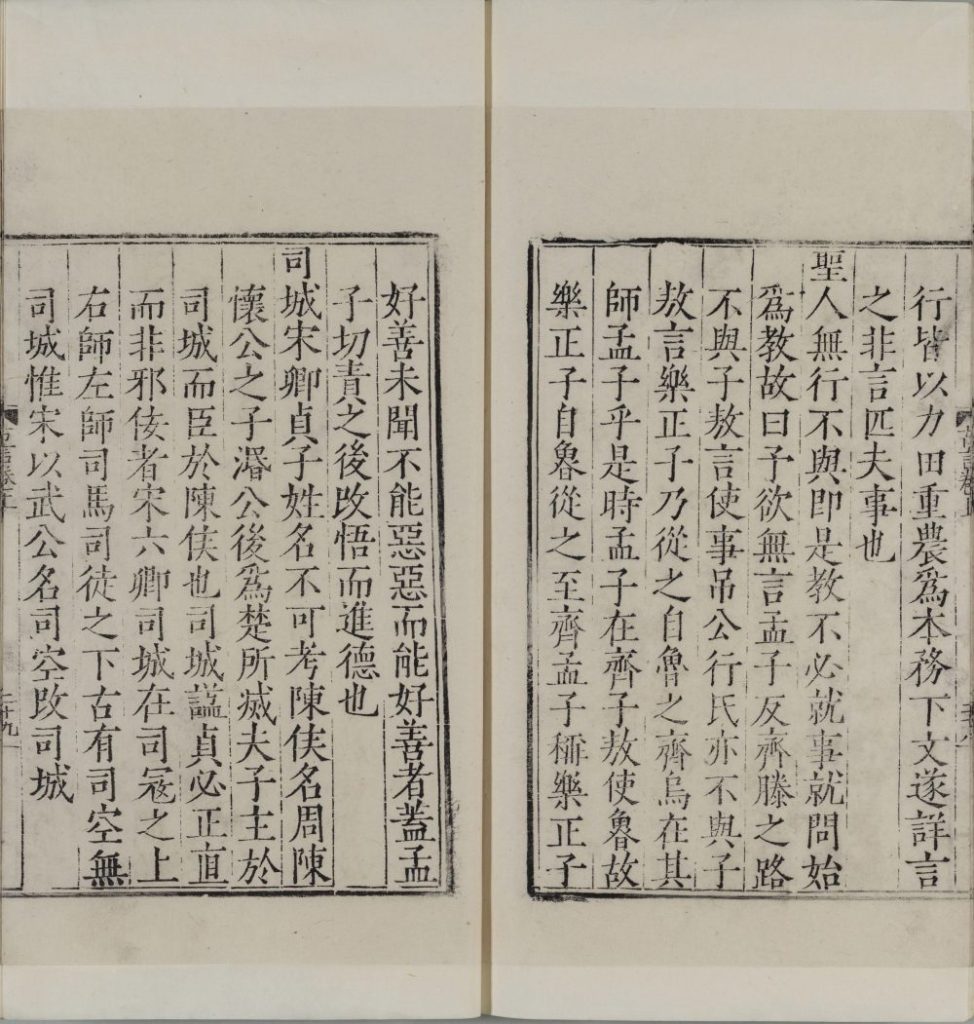 行皆以力田重農爲本務下文遂詳言
之非言匹夫事也
聖人無行不與即是教不必就事就問始
爲教故曰予欲無言孟子反齊滕之路
不與子敖言使事吊公行氏亦不與子
敖言樂正子乃從之自魯之齊烏在其
師孟子乎是時孟子在齊子敖使魯故
樂正子自魯從之至齊孟子稱樂正子
好善未聞不能惡惡而能好善者蓋孟
子切責之後改悟而進德也
司城宋卿貞子姓名不可考陳侯名周陳
懷公之子湣公後爲楚所滅夫子主於
司城而臣於陳侯也司城諡貞必正直
而非邪佞者宋六卿司城在司寇之上
右師左師司馬司徒之下古有司空無
司城惟宋以武公名司空改司城
二十九